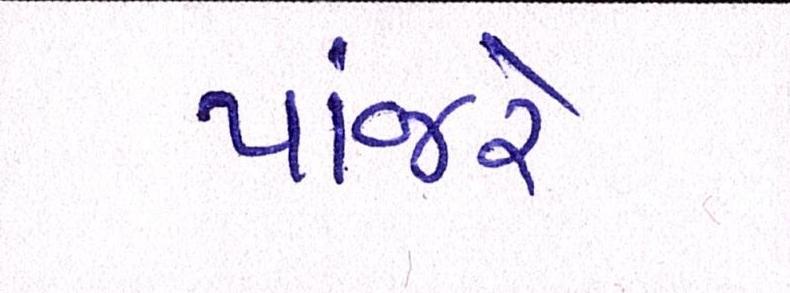 પાંજરે